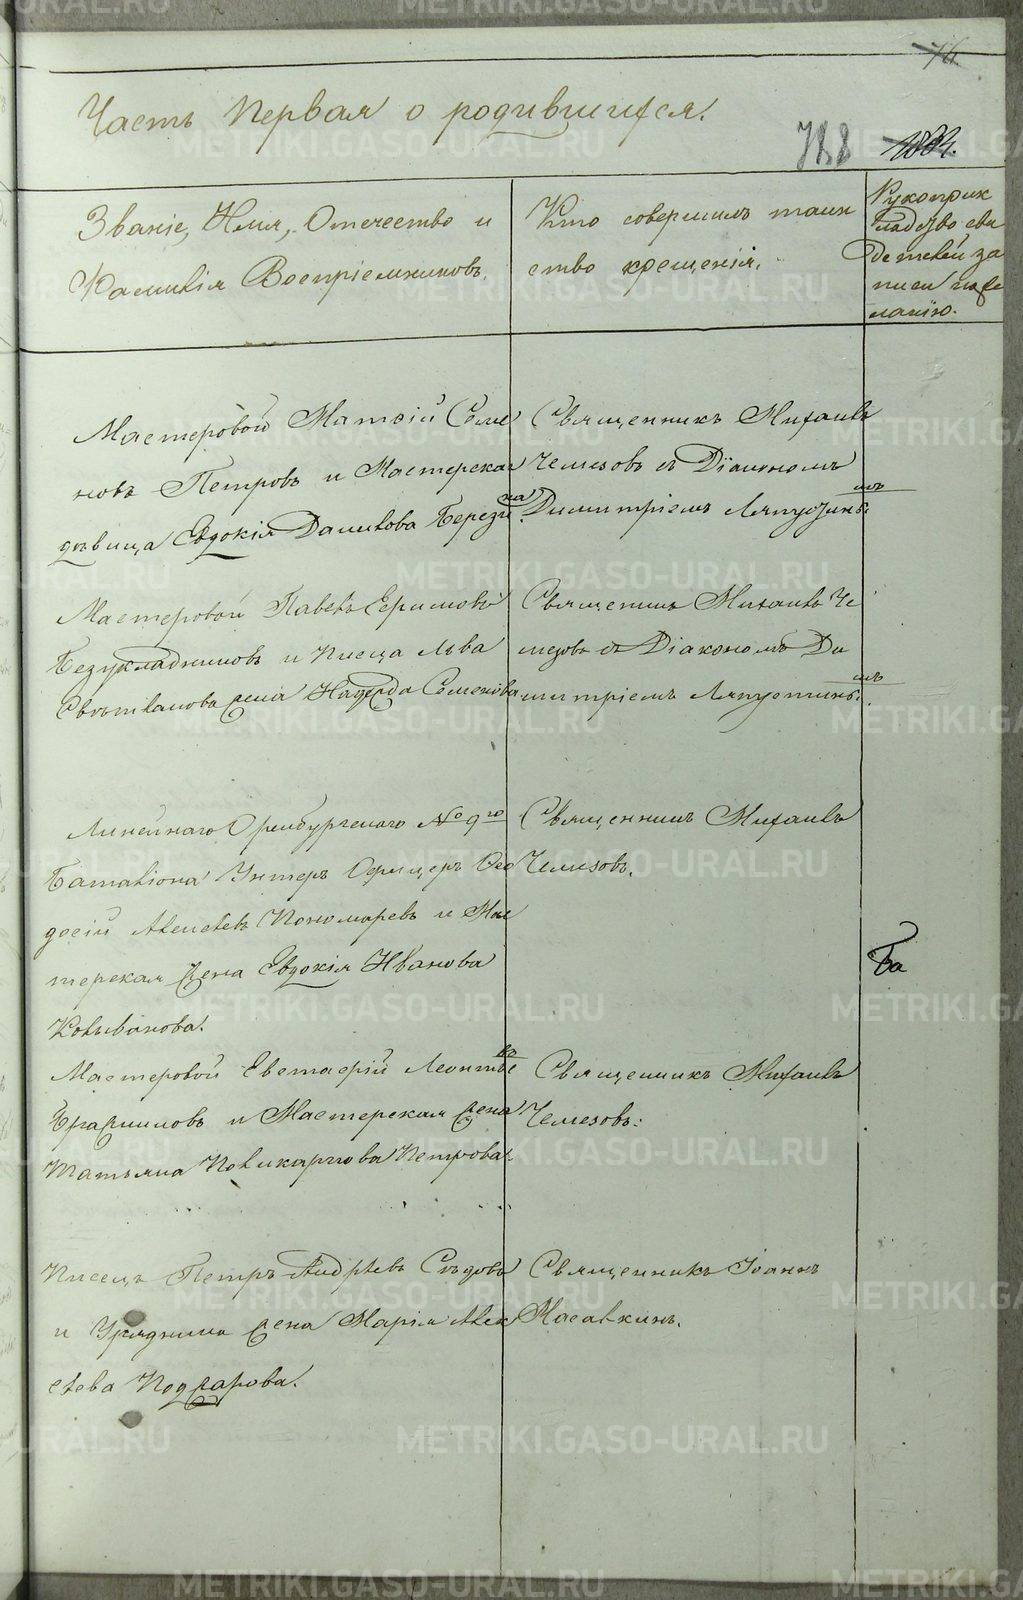 76.
Часть Первая о родившихся.
788 1884.
Званіе, Имя, Отечество и
Фамилія Воспріемниковъ.
Кто совершилъ таин
ство крещенія.
Рукоприк
ладство сви
детелей за
писи по же
ланію.
Мастеровой Матѳій Семе
новъ Петровъ и Мастерская
дѣвица Евдокія Данилова Березина
Священникъ Михаилъ
Чемезовъ съ Діакономъ
Димитріемъ Ляпустинымъ.
Мастеровой Павелъ Ефимовъ
Безукладниковъ и Писца Льва
Свѣтлакова жена Надежда Семенова
Священникъ Михаилъ Че
мезовъ съ Діакономъ Ди
митріемъ Ляпустинымъ.
Линейнаго Оренбургскаго № 9го
Баталіона Унтеръ Офицеръ Ѳео
досій Алексѣевъ Пономаревъ и Мас
терская жена Евдокія Иванова
Колыванова.
Священникъ Михаилъ
Чемезовъ.
Ба
Мастеровой Евстафій Леонтьевъ
и Мастерская жена
Татьяна Поликарпова Петрова.
Священникъ Михаилъ
Чемезовъ.
Писецъ Петръ Андрѣевъ Сѣдовъ
и Урядника жена Марія Алек
сѣева Поджарова.
Священникъ Іоаннъ
METRIKI.GASO-URAL.RU